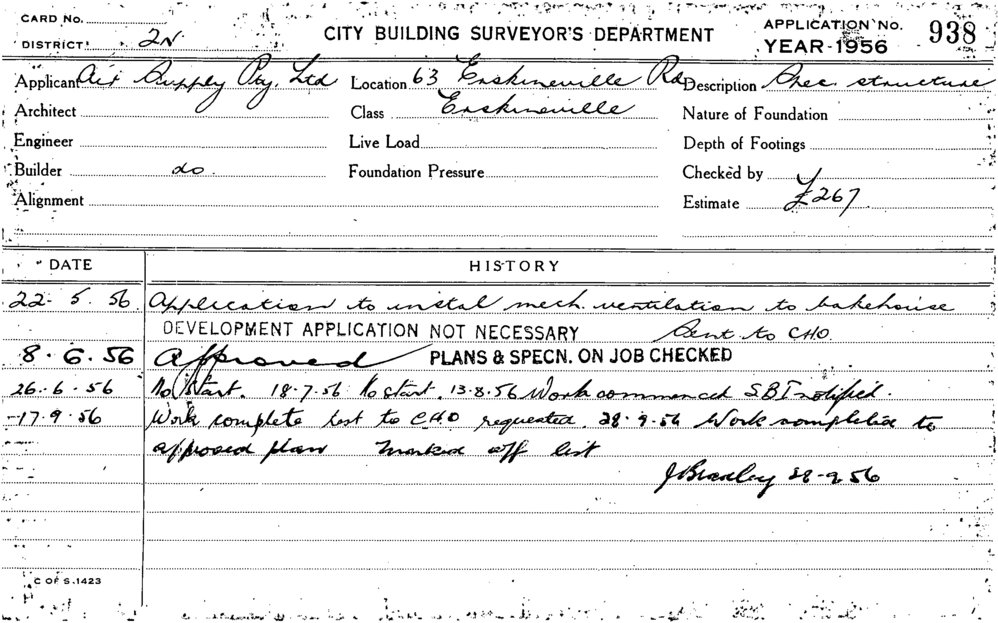 CARD No.
DISTRICT 2N.
CITY BUILDING SURVEYOR'S DEPARTMENT
APPLICATION No. 938
YEAR-1956
Applicant Air Supply Pty. Ltd Location 63 Erskineville Rd Description Spec. structure
Architect Class Erskineville Nature of Foundation
Engineer Live Load Depth of Footings
Builder do. Foundation Pressure Checked by
Alignment Estimate £267
DATE HISTORY
22-5.56 Application to instal mech. ventilation to bakehouse
DEVELOPMENT APPLICATION NOT NECESSARY Sent to CHO.
8.6.56 Approved PLANS & SPECN. ON JOB CHECKED
26.6.56 No start. 18.7.56 No start. 13.8.56 Work commenced SBI notified.
-17.9.56 Work complete test to CHO requested. 28.9.56 Work completed to
approved plan marked off list
28-9 56
C OF S.1423